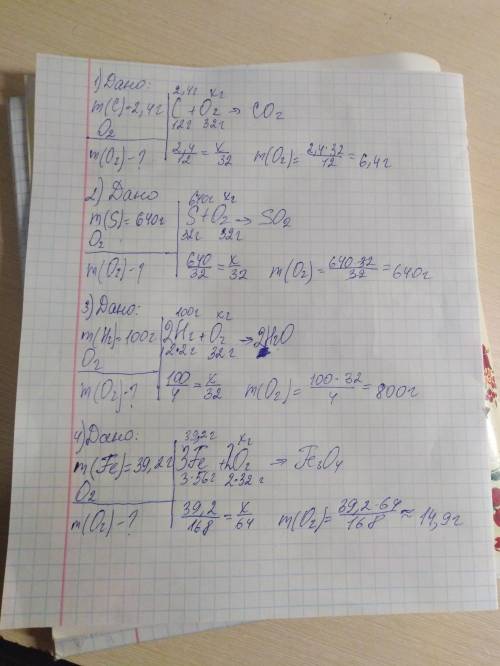 1) Дано:
m(C)=2,4г
O₂
m(O₂)-?
2,4г xг
C + O₂ → CO₂
12г 32г
2,4/12 = x/32 m(O₂) = 2,4·32/12 = 6,4г
2) Дано
m(S)= 640г
O₂
m(O₂)-?
640г xг
S + O₂ → SO₂
32г 32г
640/32 = x/32 m(O₂) = 640·32/32 = 640г
3) Дано:
m(H₂)=100г
O₂
m(O₂)-?
100г xг
2H₂ + O₂ → 2H₂O
2·2г 32г
100/4 = x/32 m(O₂) = 100·32/4 = 800г
4) Дано:
m(Fe)=39,2г
O₂
m(O₂)-?
39,2г xг
3Fe + 2O₂ → Fe₃O₄
3·56г 2·32г
39,2/168 = x/64 m(O₂) = 39,2·64/168 ≈ 14,9г